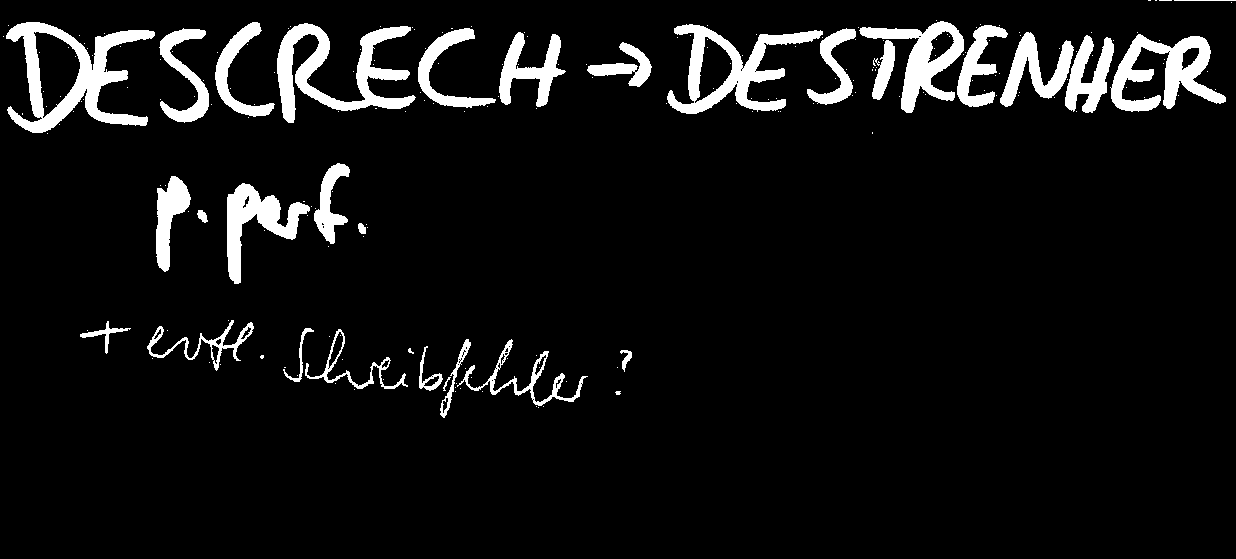 DESCRECH → DESTRENHER
p. perf.
+ evtl. Schreibfehler?